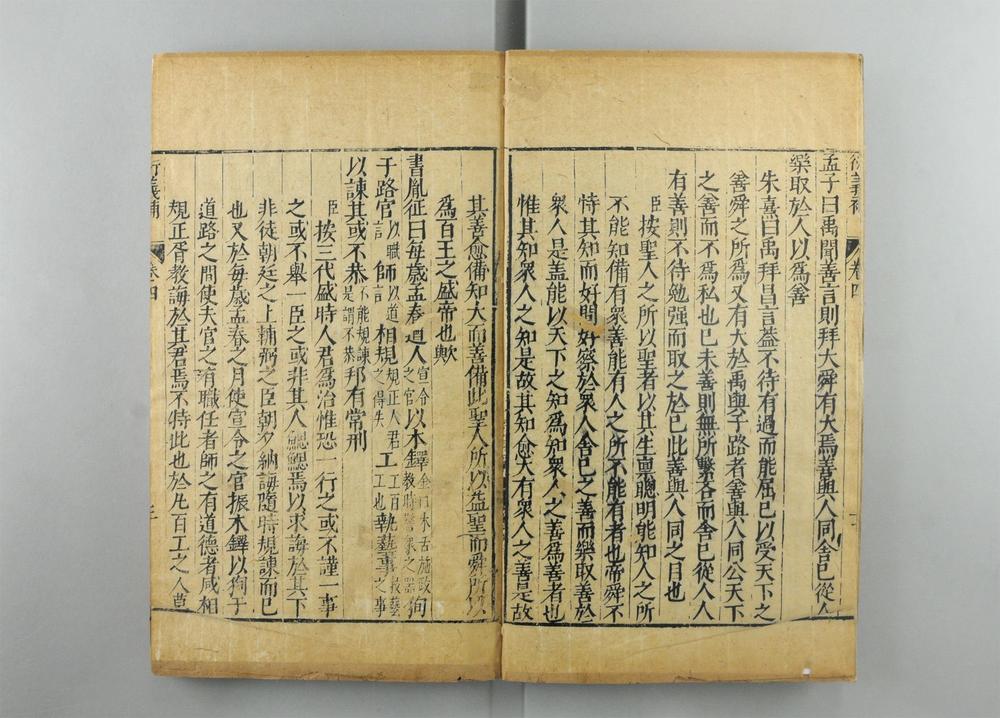 衍義補 卷四
孟子曰禹聞善言則拜大舜有大焉善與人同舍已從人
樂取於人以爲善
朱熹曰禹拜昌言蓋不待有過而能屈已以受天下之
善舜之所爲又有大於禹與子路者善與人同公天下
之善而不爲私也已未善則無所繫吝而舍已從人人
有善則不待勉强而取之於已此善與人同之目也
臣按聖人之所以聖者以其生禀聰明能知人之所
不能知備有衆善能有人之所不能有者也帝舜不
恃其知而好問好察於衆人舍已之善而樂取善於
衆人是盖能以天下之知爲知衆人之善爲善者也
惟其知衆人之知是故其知愈大有衆人之善是故
其善愈備知大而善備此聖人所以益聖而舜所以
爲百王之盛帝也歟
書胤征曰每歲孟春遒人宣令之官以木鐸金口木舌施政教時警衆之器徇
于路官以職言師以道言相規規正人君之得失工百工也執藝事技藝之事
以諫其或不恭不能規諫是謂不恭邦有常刑
臣按三代盛時人君爲治惟恐一行之或不謹一事
之或不舉一臣之或非其人鰓鰓焉以求誨於其下
非徒朝廷之上輔弼之臣朝夕納誨隨時規諫而已
也又於每歲孟春之月使宣令之官振木鐸以徇于
道路之間使夫官之有職任者師之有道德者咸相
規正胥教誨於其君焉不特此也於凡百工之人莫
衍義補 卷四 三